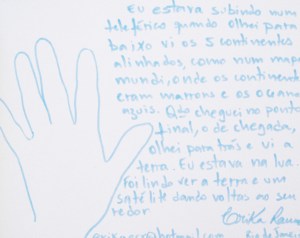 Eu estava subindo num
teleférico quando olhei para
baixo vi os 5 continentes
alinhados, como num mapa
mundi, onde os continent
eram marrons e os oceano
azuis. Qdo cheguei no ponto
final, o de chegada,
olhei para trás e vi a
terra. Eu estava na lua.
Foi lindo ver a terra e um
satélite dando voltas ao seu
redor
Erika
@hotmail.com Rio de Janeiro